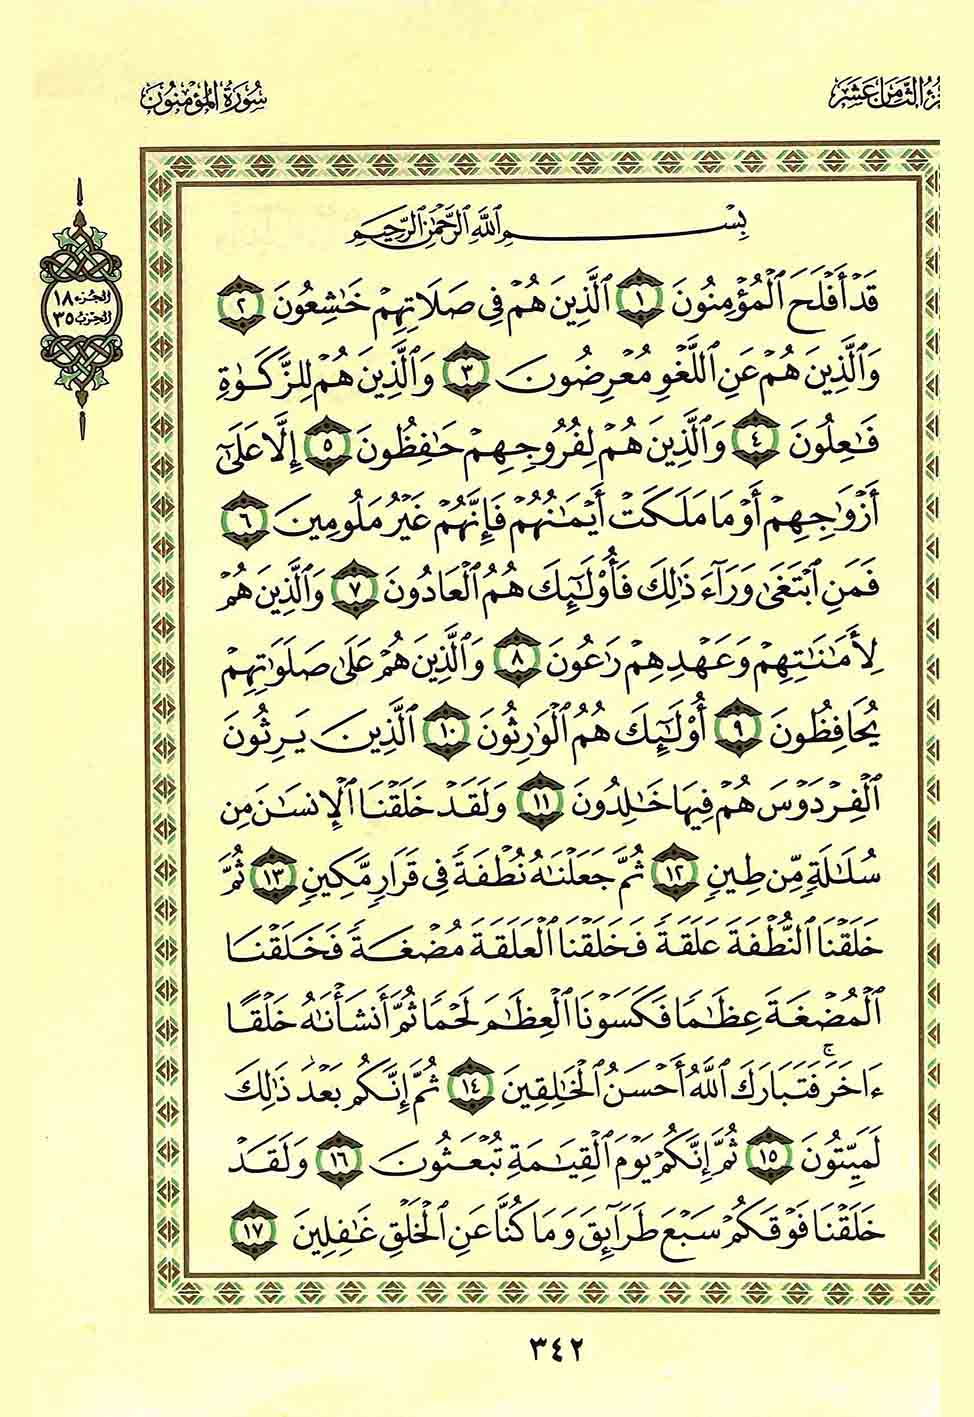 سُورَةُ المُؤْمِنُون
الثَّامِنَ عَشَرَ
الجزء ١٨
الحزب ٣٥
بِسْمِ ٱللَّهِ ٱلرَّحْمَٰنِ ٱلرَّحِيمِ
قَدْ أَفْلَحَ ٱلْمُؤْمِنُونَ ١ ٱلَّذِينَ هُمْ فِى صَلَاتِهِمْ خَٰشِعُونَ ٢
وَٱلَّذِينَ هُمْ عَنِ ٱللَّغْوِ مُعْرِضُونَ ٣ وَٱلَّذِينَ هُمْ لِلزَّكَوٰةِ
فَٰعِلُونَ ٤ وَٱلَّذِينَ هُمْ لِفُرُوجِهِمْ حَٰفِظُونَ ٥ إِلَّا عَلَىٰٓ
أَزْوَٰجِهِمْ أَوْ مَا مَلَكَتْ أَيْمَٰنُهُمْ فَإِنَّهُمْ غَيْرُ مَلُومِينَ ٦
فَمَنِ ٱبْتَغَىٰ وَرَآءَ ذَٰلِكَ فَأُو۟لَٰٓئِكَ هُمُ ٱلْعَادُونَ ٧ وَٱلَّذِينَ هُمْ
لِأَمَٰنَٰتِهِمْ وَعَهْدِهِمْ رَٰعُونَ ٨ وَٱلَّذِينَ هُمْ عَلَىٰ صَلَوَٰتِهِمْ
يُحَافِظُونَ ٩ أُو۟لَٰٓئِكَ هُمُ ٱلْوَٰرِثُونَ ١٠ ٱلَّذِينَ يَرِثُونَ
ٱلْفِرْدَوْسَ هُمْ فِيهَا خَٰلِدُونَ ١١ وَلَقَدْ خَلَقْنَا ٱلْإِنسَٰنَ مِن
سُلَٰلَةٍ مِّن طِينٍ ١٢ ثُمَّ جَعَلْنَٰهُ نُطْفَةً فِى قَرَارٍ مَّكِينٍ ١٣ ثُمَّ
خَلَقْنَا ٱلنُّطْفَةَ عَلَقَةً فَخَلَقْنَا ٱلْعَلَقَةَ مُضْغَةً فَخَلَقْنَا
ٱلْمُضْغَةَ عِظَٰمًا فَكَسَوْنَا ٱلْعِظَٰمَ لَحْمًا ثُمَّ أَنشَأْنَٰهُ خَلْقًا
ءَاخَرَ ۚ فَتَبَارَكَ ٱللَّهُ أَحْسَنُ ٱلْخَٰلِقِينَ ١٤ ثُمَّ إِنَّكُم بَعْدَ ذَٰلِكَ
لَمَيِّتُونَ ١٥ ثُمَّ إِنَّكُمْ يَوْمَ ٱلْقِيَٰمَةِ تُبْعَثُونَ ١٦ وَلَقَدْ
خَلَقْنَا فَوْقَكُمْ سَبْعَ طَرَآئِقَ وَمَا كُنَّا عَنِ ٱلْخَلْقِ غَٰفِلِينَ ١٧
٣٤٢